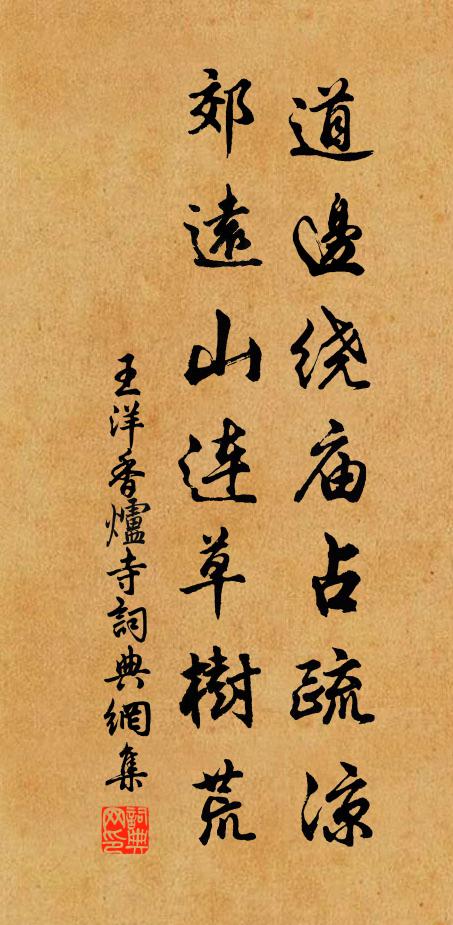 道邊绕庙占疏凉
郊遠山连草樹荒
王洋香爐寺詞典網集
詞典网印